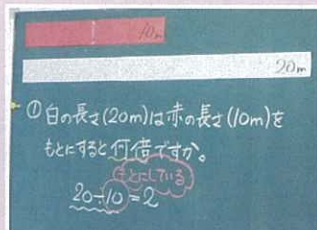 10m
20m
①白の長さ(20m)は赤の長さ(10m)を
もとにすると何倍ですか。
もとにしている
20÷10=2